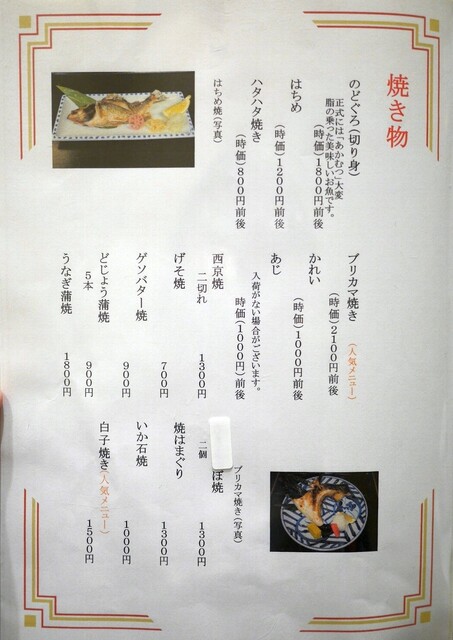 焼き物
のどぐろ(切り身)
正式には「あかむつ」大変
脂の乗った美味しいお魚です。
(時価)1800円前後
はちめ
(時価)1200円前後
ハタハタ焼き
(時価)800円前後
はちめ焼(写真)
ブリカマ焼き(人気メニュー)
(時価)2100円前後
かれい
(時価)1000円前後
あじ
入荷がない場合がございます。
(時価)1000円前後
西京焼
二切れ 1300円
げそ焼 700円
ゲソバター焼 900円
どじょう蒲焼
5本 900円
うなぎ蒲焼 1800円
ブリカマ焼き(写真)
ぼ焼
二個 1300円
焼はまぐり 1300円
いか石焼 1000円
白子焼き(人気メニュー)
1500円